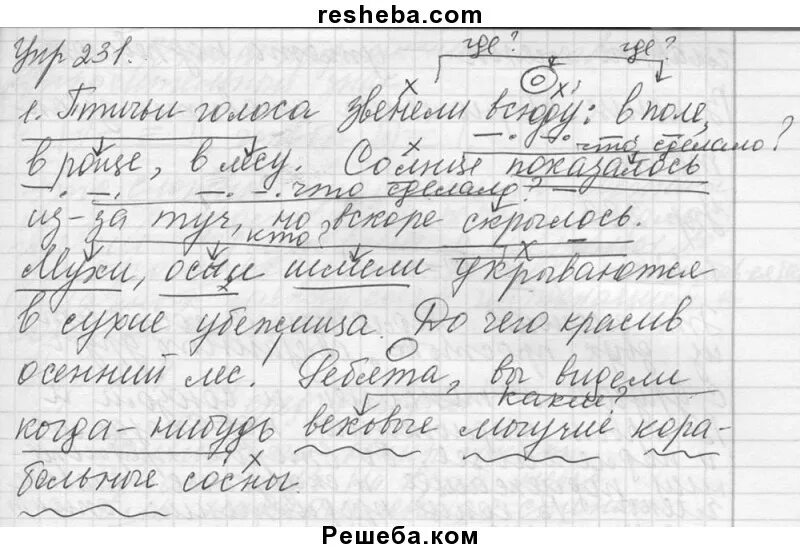 resheba.com
Упр 231.
где? где?
1. Птичьи голоса звенели всюду: в поле,
что сделало?
в роще, в лесу. Солнце показалось
что сделало?
из-за туч, но вскоре скрылось.
кто?
Мухи, осы и шмели укрываются
в сухие убежища. До чего красив
осенний лес. Ребята, вы видели
какие?
когда-нибудь вековые могучие кора-
бельные сосны.
Решеба.ком